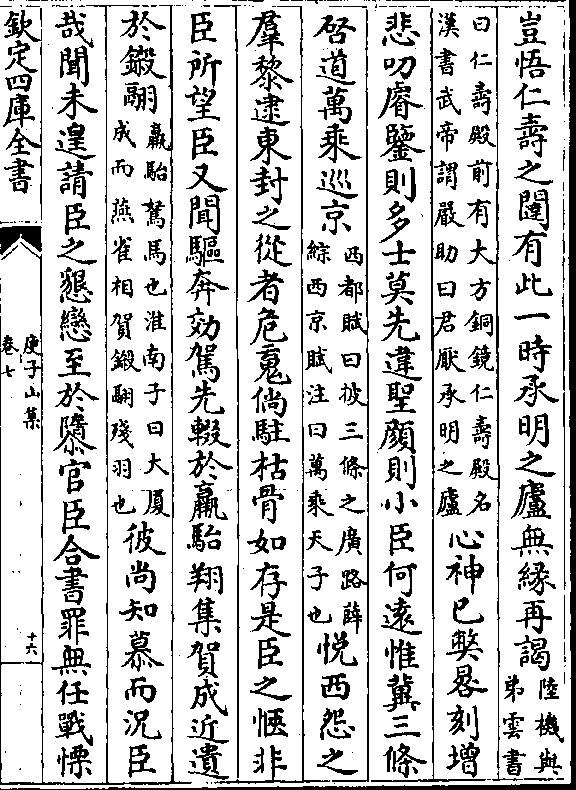 豈悟仁壽之闥有此一時承明之廬無緣再謁陸機與弟雲書
曰仁壽殿前有大方銅鏡仁壽殿名漢書武帝謂嚴助曰君厭承明之廬心神已弊晷刻增
悲叨膺鑒則多士莫先違聖顔則小臣何遠惟冀三條
啓道萬乘巡京西都賦曰披三條之廣路薛綜西京賦注曰萬乘天子也悦西怨之
羣黎逮東封之從者危䰟倘駐枯骨如存是臣之愜非
臣所望臣又聞驅奔効駕先輟於羸駘翔集賀成近遺
於鎩翮羸駘駑馬也淮南子曰大厦成而燕雀相賀鎩翮殘羽也彼尚知慕而況臣
哉聞未遑請臣之懇戀至於隳官臣合書罪無任戰慄
欽定四庫全書
庾子山集
卷七
十六